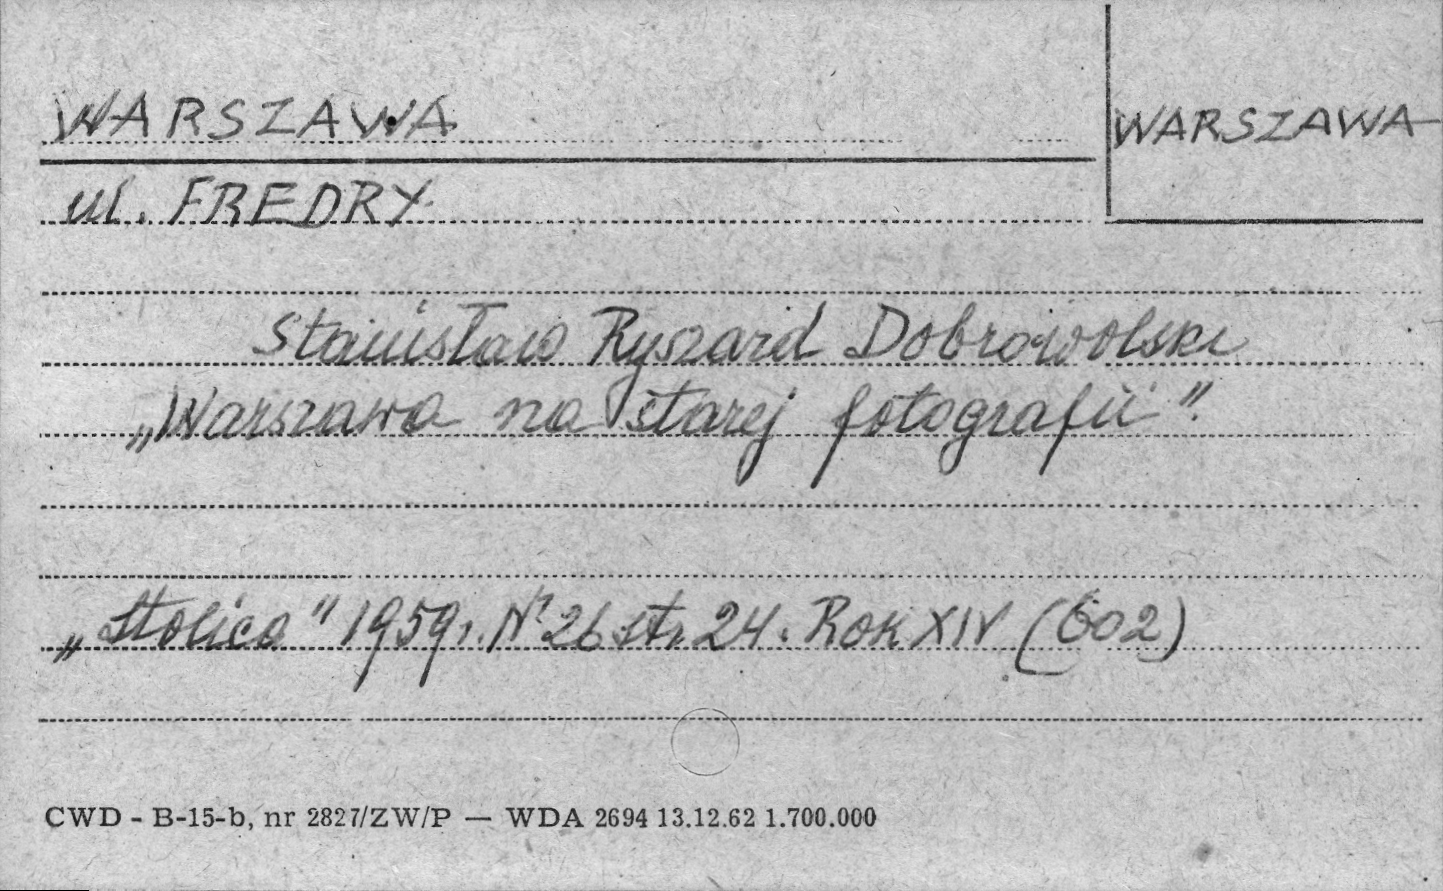 WARSZAWA
WARSZAWA
ul. FREDRY
Stanisław Ryszard Dobrowolski
„Warszawa na starej fotografii”.
„Stolica” 1959 r. Nr 26 str. 24. Rok XIV (602)
CWD - B-15-b, nr 2827/ZW/P — WDA 2694 13.12.62 1.700.000